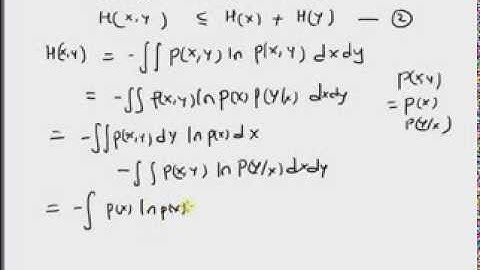 H(x,y) ≤ H(x) + H(y) — ②
H(x,y) = -∫∫ P(x,y) ln P(x,y) dxdy
= -∫∫ P(x,y) ln P(x) P(y/x) dxdy
P(x,y)
= P(x)
P(y/x)
= -∫∫ P(x,y) dy ln p(x) dx
-∫∫ P(x,y) ln P(y/x) dxdy
= -∫ p(x) ln p(x)